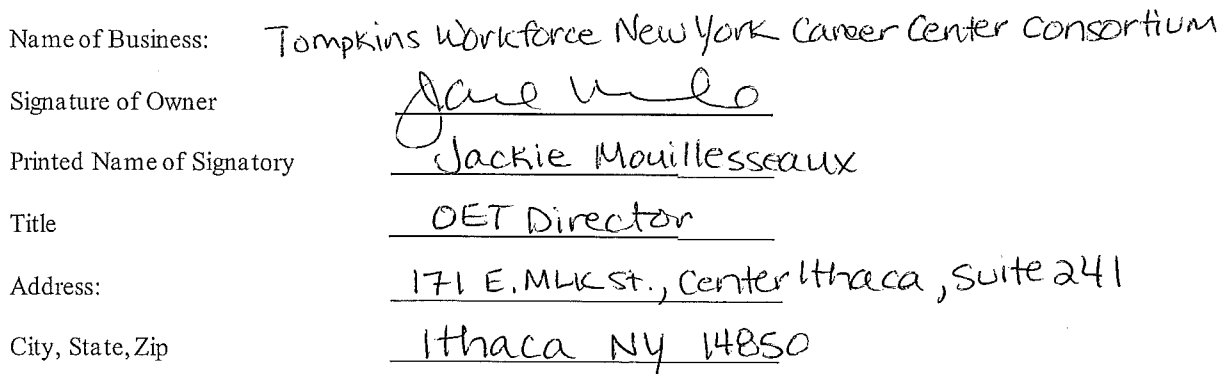 Name of Business: Tompkins Workforce New York Career Center Consortium
Signature of Owner
Printed Name of Signatory Jackie Mouillesseaux
Title OET Director
Address: 171 E. MLK St., Center Ithaca, Suite 241
City, State, Zip Ithaca NY 14850